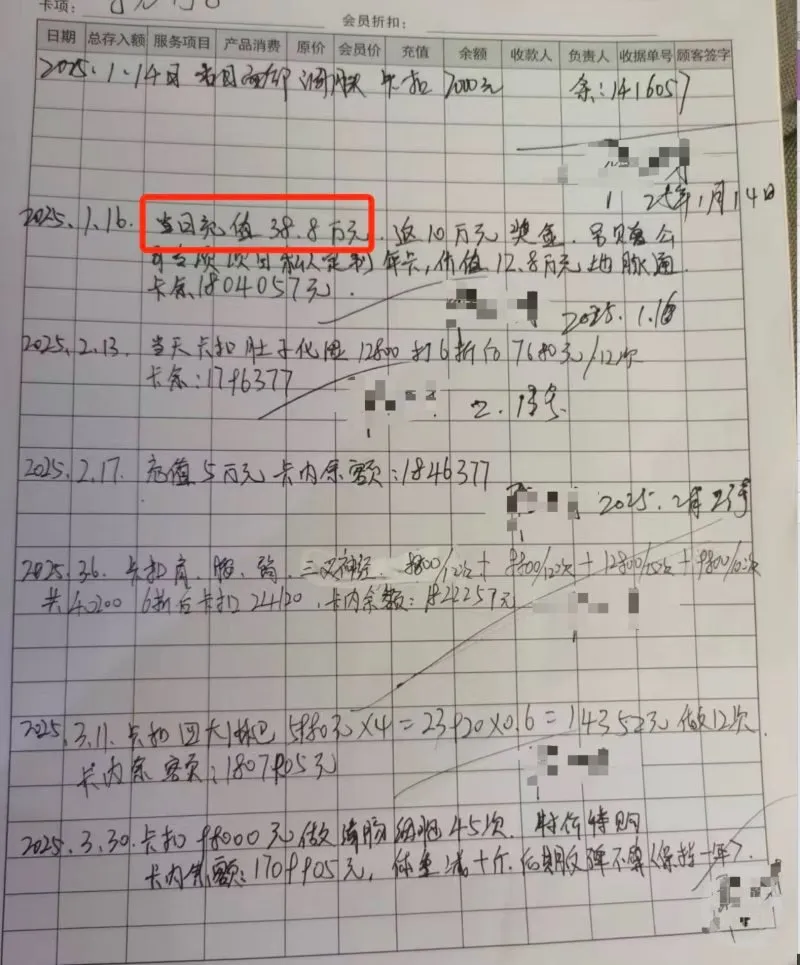 卡项:
会员折扣:
日期 总存入额 服务项目 产品消费 原价 会员价 充值 余额 收款人 负责人 收据单号 顾客签字
2025.1.14日 卡扣 7000元 余:1416057
2025年1月14日
2025.1.16. 当日充值 38.8万元. 返10万元奖金.
项目私人定制年卡,价值12.8万元地脉通
卡余1804057元.
2025.1.16
2025.2.13. 当天卡扣肚子化湿12800打6折后7680元/12次
卡余:1796377
2.13
2025.2.17. 充值5万元卡内余额:1846377
2025.2月
2025.3.6. 卡扣肩、腰、三叉神经. 9800/12次+9800/12次+12800/ 次+9800/ 次
共40200 6折后卡扣24120.卡内余额:1822257元
2025.3.11.卡扣四大淋巴5980元×4=23920×0.6=14352元 做12次.
卡内余额:1807905元
2025.3.30.卡扣98000元做 45次. 特价特购
卡内余额:1709905元,体重减十斤.后期反弹不算(保持一年).